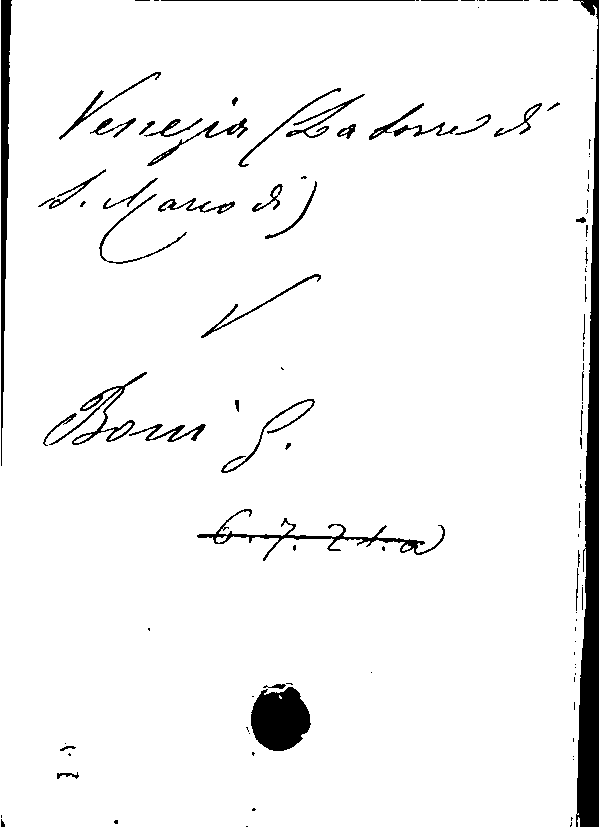 Venezia (La torre di
S. Marco di)
V
Boni G.
6.7.Z.1.a